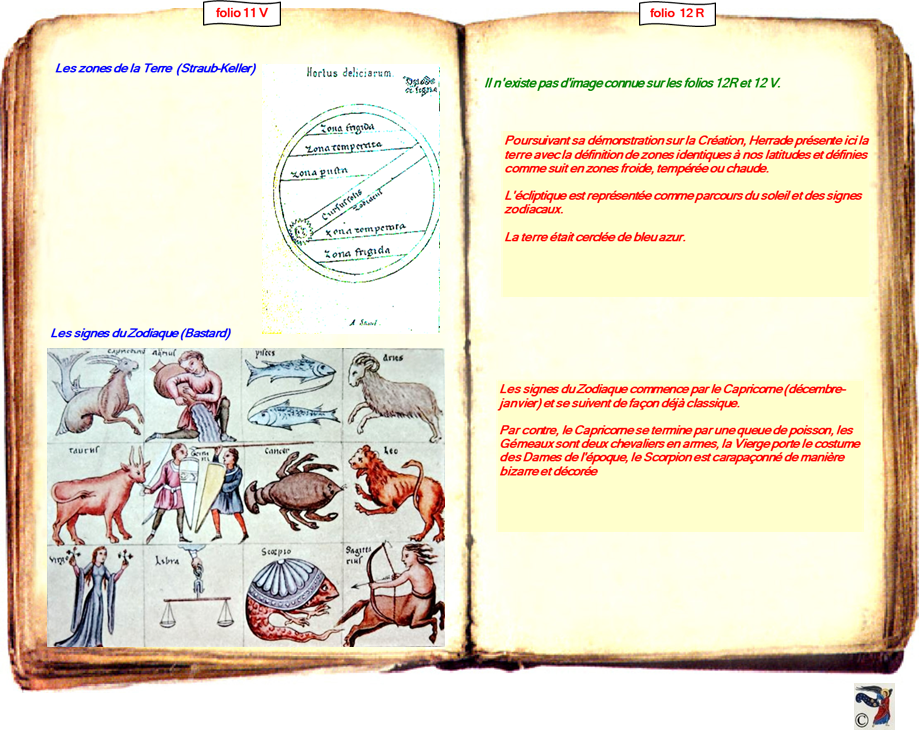 folio 11 V
Les zones de la Terre (Straub-Keller)
Hortus deliciarum.
Zona frigida
Zona temperata
Zona
Cursus solis
Zodiacus
Zona temperata
Zona frigida
Les signes du Zodiaque (Bastard)
capricornus
pisces
aries
taurus
Gemini
Cancer
Leo
virgo
Libra
Scorpio
Sagitta
rius
folio 12 R
Il n'existe pas d'image connue sur les folios 12R et 12 V.
Poursuivant sa démonstration sur la Création, Herrade présente ici la
terre avec la définition de zones identiques à nos latitudes et définies
comme suit en zones froide, tempérée ou chaude.
L'écliptique est représentée comme parcours du soleil et des signes
zodiacaux.
La terre était cerclée de bleu azur.
Les signes du Zodiaque commence par le Capricorne (décembre-
janvier) et se suivent de façon déjà classique.
Par contre, le Capricorne se termine par une queue de poisson, les
Gémeaux sont deux chevaliers en armes, la Vierge porte le costume
des Dames de l'époque, le Scorpion est carapaçonné de manière
bizarre et décorée
©